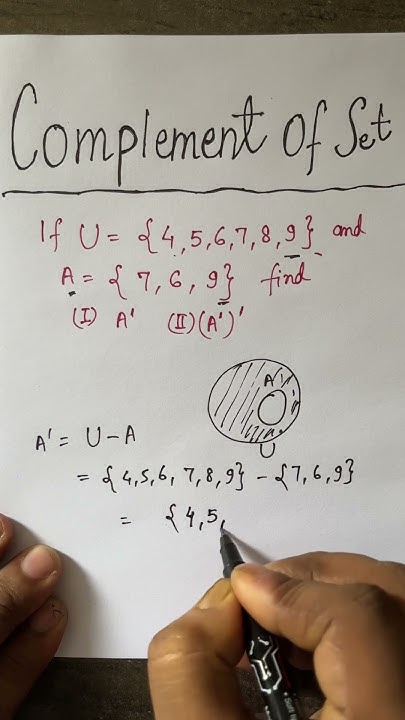 Complement Of Set
If U = {4,5,6,7,8,9} and
A = {7,6,9} find
(I) A' (II) (A')'
A'
U
A' = U-A
= {4,5,6,7,8,9} - {7,6,9}
= {4,5,